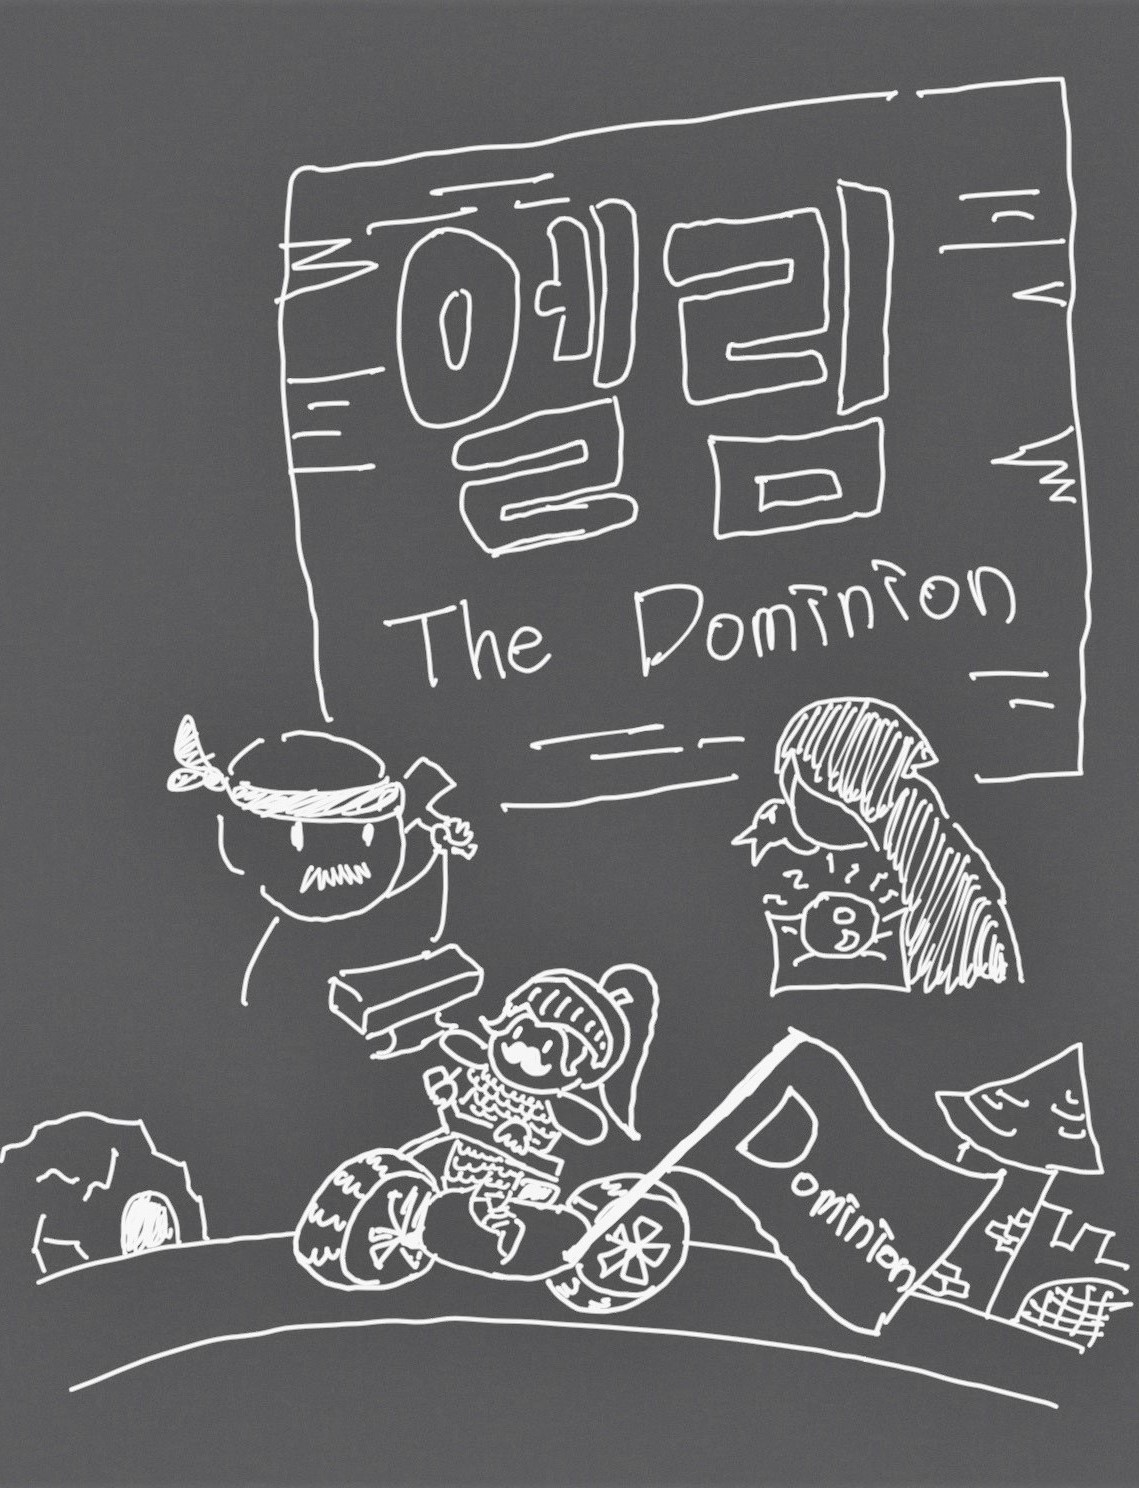 엘림
The Dominion
Dominion